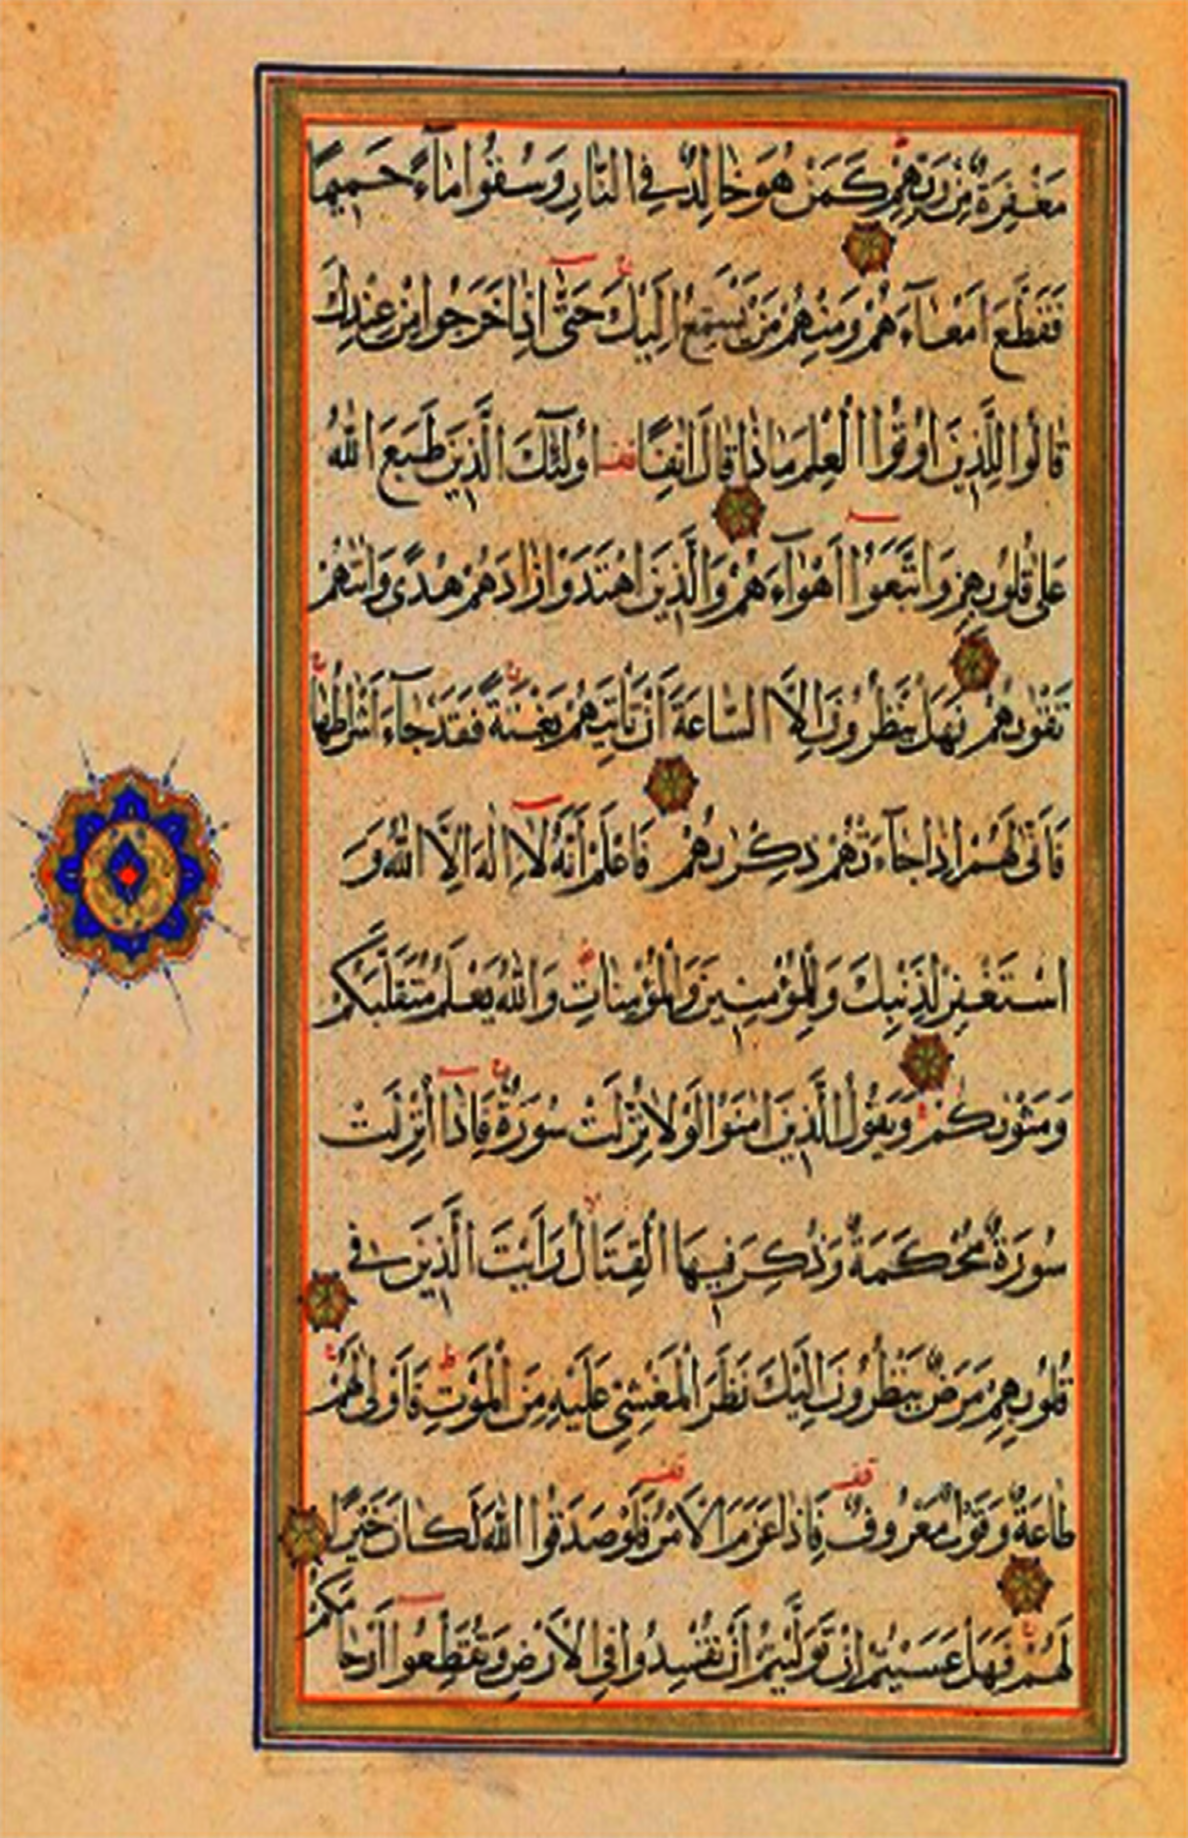 مَغْفِرَةٌ مِنْ رَبِّهِمْ كَمَنْ هُوَ خَالِدٌ فِي النَّارِ وَسُقُوا مَآءً حَمِيمًا
فَقَطَّعَ اَمْعَآءَهُمْ وَمِنْهُمْ مَنْ يَسْتَمِعُ اِلَيْكَ حَتّٰى اِذَا خَرَجُوا مِنْ عِنْدِكَ
قَالُوا لِلَّذِينَ اُوتُوا الْعِلْمَ مَاذَا قَالَ اٰنِفًا قف اُولٰئِكَ الَّذِينَ طَبَعَ اللّٰهُ
عَلٰى قُلُوبِهِمْ وَاتَّبَعُوا اَهْوَآءَهُمْ وَالَّذِينَ اهْتَدَوْا زَادَهُمْ هُدًى وَاٰتٰهُمْ
تَقْوٰىهُمْ فَهَلْ يَنْظُرُونَ اِلَّا السَّاعَةَ اَنْ تَاْتِيَهُمْ بَغْتَةً فَقَدْ جَآءَ اَشْرَاطُهَا
فَاَنّٰى لَهُمْ اِذَا جَآءَتْهُمْ ذِكْرٰىهُمْ فَاعْلَمْ اَنَّهُ لَا اِلٰهَ اِلَّا اللّٰهُ وَ
اسْتَغْفِرْ لِذَنْبِكَ وَلِلْمُؤْمِنِينَ وَالْمُؤْمِنَاتِ وَاللّٰهُ يَعْلَمُ مُتَقَلَّبَكُمْ
وَمَثْوٰىكُمْ وَيَقُولُ الَّذِينَ اٰمَنُوا لَوْلَا نُزِّلَتْ سُورَةٌ فَاِذَا اُنْزِلَتْ
سُورَةٌ مُحْكَمَةٌ وَذُكِرَ فِيهَا الْقِتَالُ رَاَيْتَ الَّذِينَ فِي
قُلُوبِهِمْ مَرَضٌ يَنْظُرُونَ اِلَيْكَ نَظَرَ الْمَغْشِيِّ عَلَيْهِ مِنَ الْمَوْتِ فَاَوْلٰى لَهُمْ
طَاعَةٌ وَقَوْلٌ مَعْرُوفٌ فَاِذَا عَزَمَ الْاَمْرُ فَلَوْ صَدَقُوا اللّٰهَ لَكَانَ خَيْرًا
لَهُمْ فَهَلْ عَسَيْتُمْ اِنْ تَوَلَّيْتُمْ اَنْ تُفْسِدُوا فِي الْاَرْضِ وَتُقَطِّعُوا اَرْحَامَكُمْ